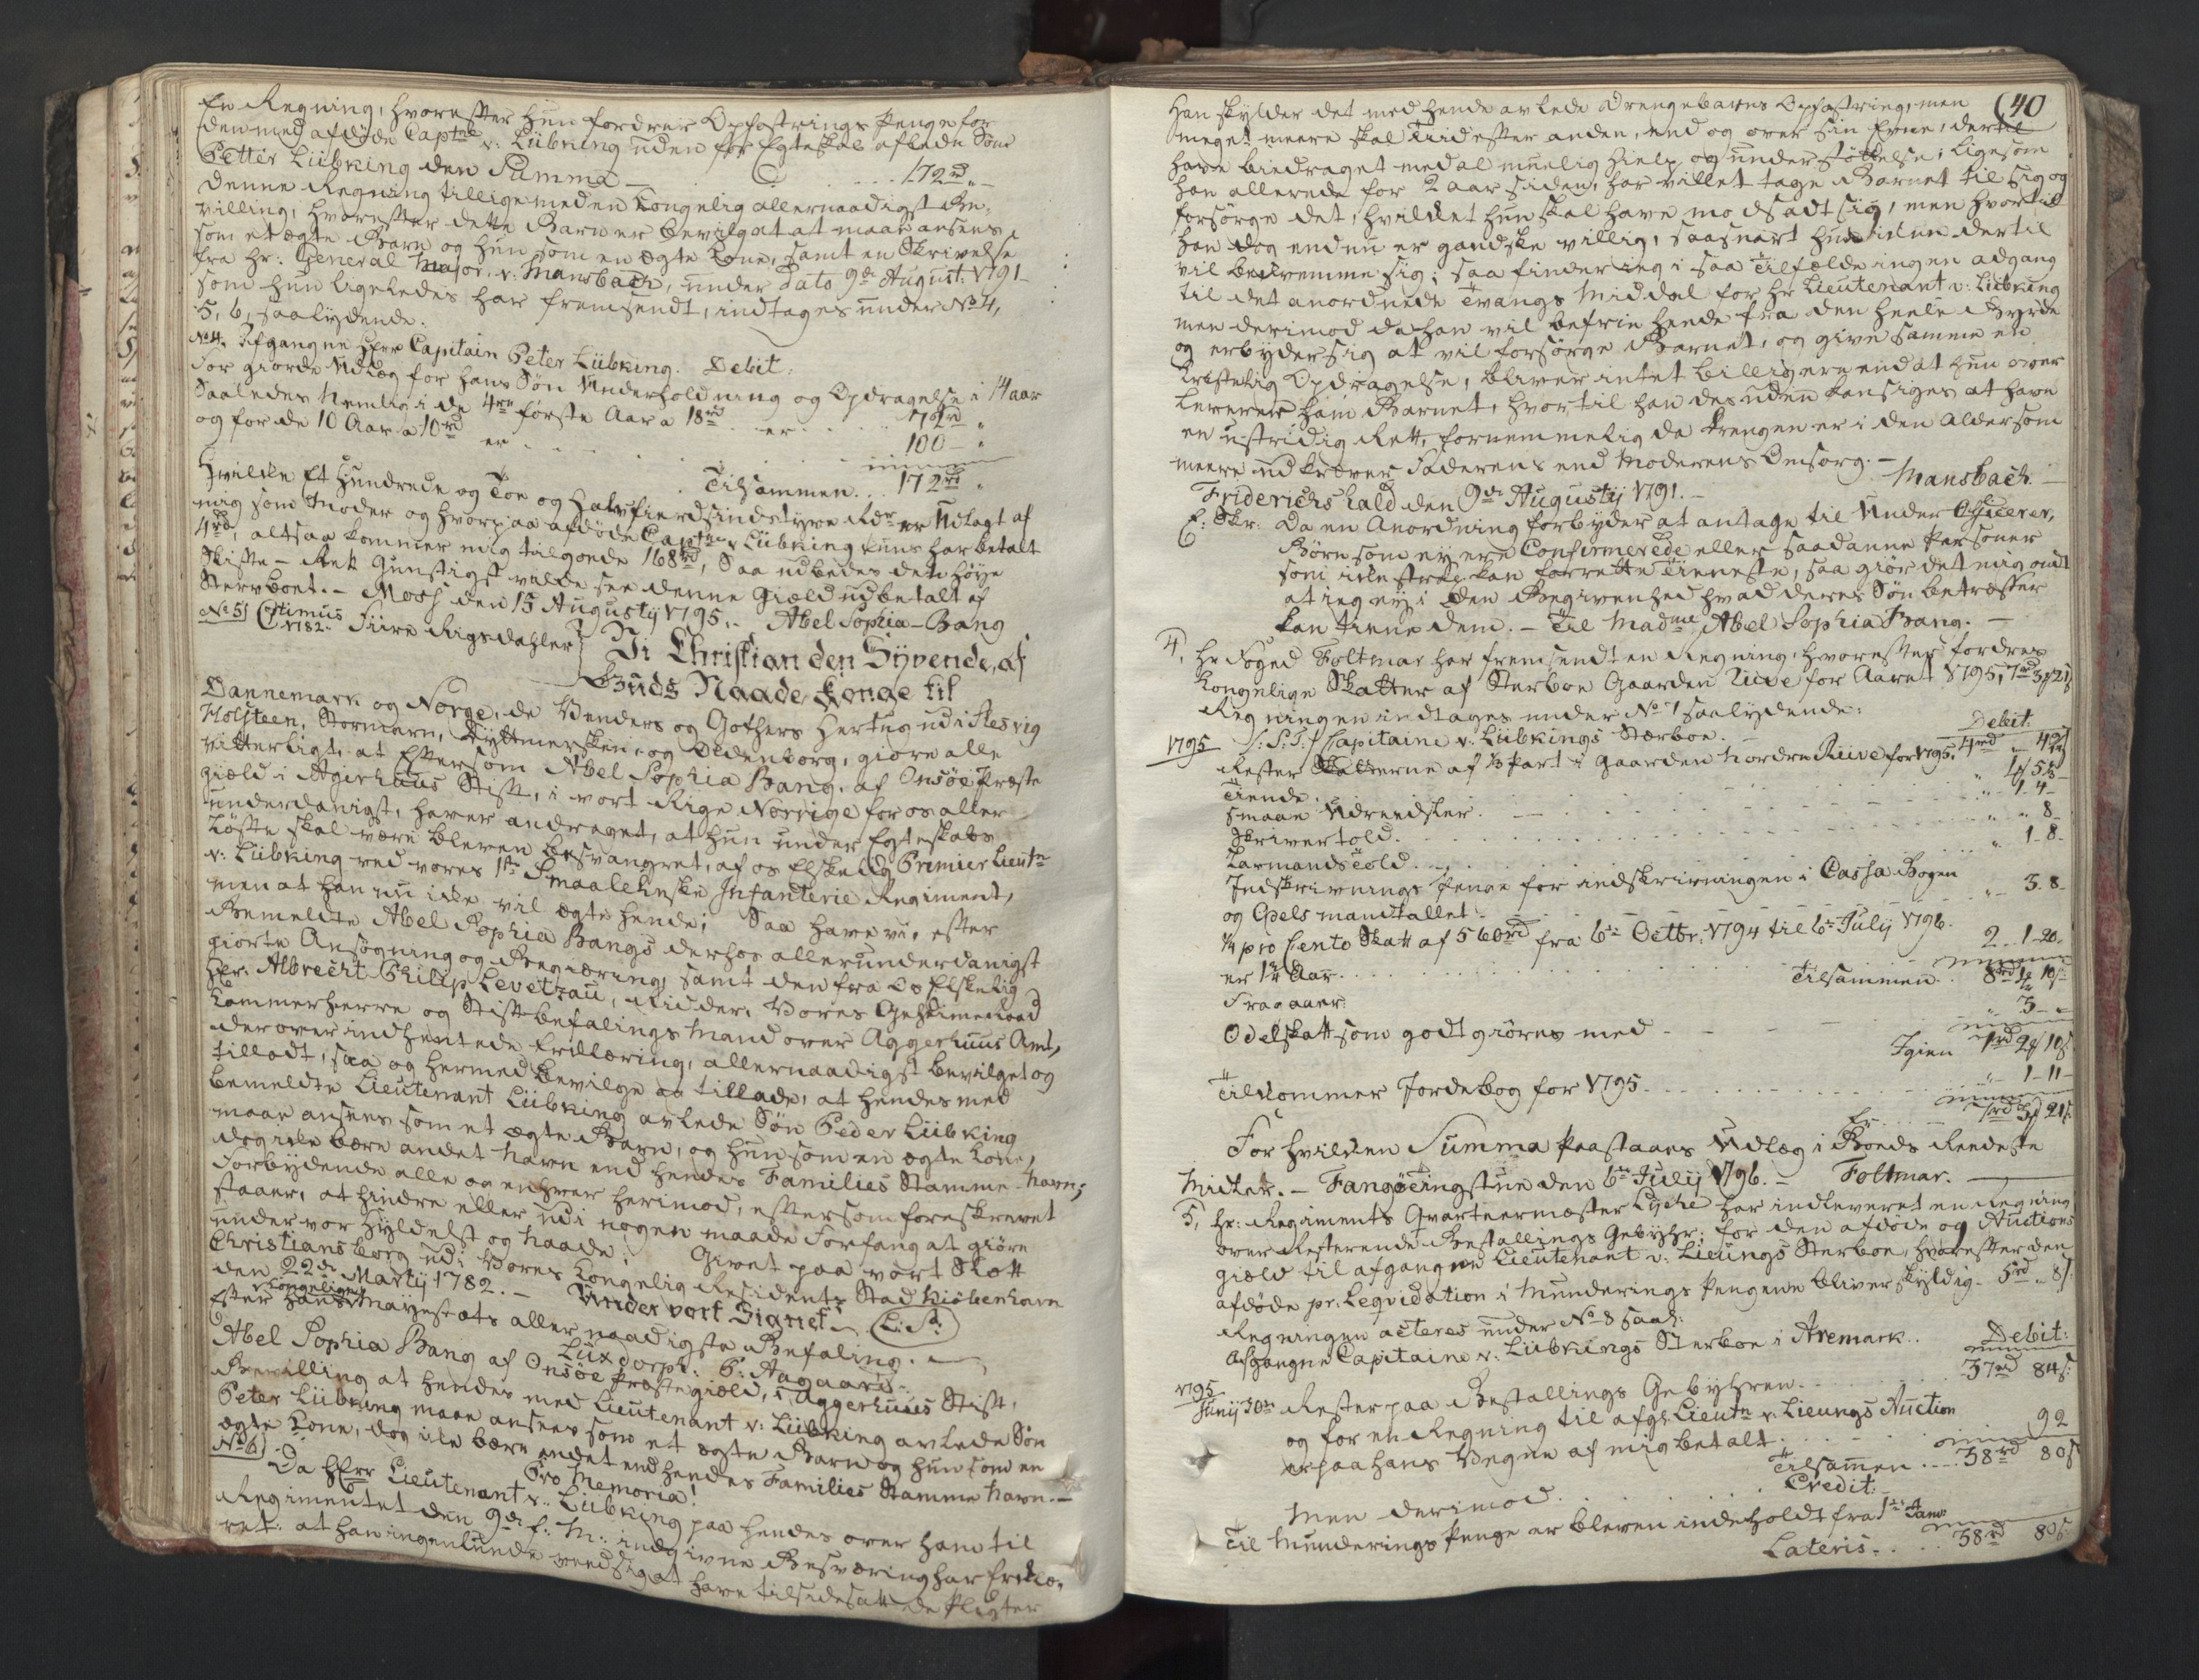 En Regning, hvorefter hun fordrer Opfostrings Penge for
den med afdøde Captne v: Lübking uden for Egteskab aflede Søn
Petter Lübking den Summa — . . . 172rd „ —
denne Regning tilligemed en Kongelig allernaadigst Be-
villing, hvorefter dette Barn er bevilget at maae ansees
som et ægte Barn og hun som en ægte Kone, samt en Skrivelse
fra Hr: General Major v: Mansbach, under Dato 9de August: 1791
som hun ligeledes har fremsendt, indtages under No 4,
5, 6, saalydende.
No 4. Afgangne Herr Capitain Peter Lübking. Debit:
For giorde Udlæg for hans Søn Underholdning og Opdragelse i 14 aar
Saaledes Nemlig i de 4re første Aar a 18rd . . er . . . 72rd „
og for de 10 Aar a 10rd er . . . 100 — „
Tilsammen . . 172rd „
Hvilke Et Hundrede og Toe og Halvfierdsindstyve Rdr er Udlagt af
mig som Moder og hvorpaa afdøde Captne v Lübking kuns har betalt
4rd, altsaa kommer mig tilgoede 168rd, Saa udbedes den høye
Skifte-Ret Gunstigst vilde see denne Giæld udbetalt af
Stervboet. — Moss den 15 Augustij 1795. — Abel Sophia Bang
No 5) Optimus 1782. Fiire Rigsdahler} Vi Christian den Syvende, af
Guds Naade Konge til
Dannemark og Norge, de Venders og Gothers Hertug udi Slesvig
Holsteen, Stormarn, Dyttmersken og Oldenborg, giøre alle
vitterligt, at Eftersom Abel Sophia Bang, af Onsøe Præste
giæld i Agerhuus Stift, i vort Rige Norrige for os aller
underdanigst, haver andraget, at hun under Egteskabs
Løfte skal være bleven besvangret, af os Elskelig Premier Lieutn
v: Lübking ved vores 1ste Smaalehnske Infanterie Regiment,
men at han nu ikke vil ægte hende; Saa have vi, efter
Bemeldte Abel Sophia Bangs derhos allerunderdanigst
giorte Ansøgning og Begiæring, samt den fra Os Elskelig
Hr: Albrecht Philip Levetzau, Ridder, Vores Geheimeraad
Kammerherre og Stiftbefalingsmand over Aggerhuus Amt,
derover indhentede Erklæring, allernaadigst bevilget og
tilladt, saa og hermed bevilge og tillade, at hendes med
bemeldte Lieutenant Lübking avlede Søn Peder Lübking
maae ansees som et ægte Barn, og hun som en ægte Kone,
dog ikke bære andet Navn end hendes Families Stamme-Navn;
Forbydende alle og enhver herimod, eftersom foreskrevet
staaer, at hindre eller udi nogen maade Forfang at giøre
under vor Hyldest og Naade. Givet paa vort Slott
Christiansborg udi Vores Kongelig Residents Stad Kiøbenhavn
den 22de Martij 1782. — Under vort Signet. (L: S:)
Efter hans Kongelige Mayestæts allernaadigste Befaling. —
Luxdorph. C: Aagaard.
Abel Sophia Bang af Onsøe Præstegiæld, i Aggerhuus Stift,
Bevilling at hendes med Lieutenant v: Lübking avlede Søn
Peter Lübking maae ansees som et ægte Barn og hun som en
ægte Kone, dog ikke bære andet end hendes Families Stamme Navn. —
No 6) Pro Memoria!
Da Herr Lieutenant v: Lübking paa hendes over ham til
Regimentet den 9de f: M: indgivne Besværing har Erklæ-
ret: at han ingenlunde veed sig at have tilsidesatt de Pligter
(40
Han skylder det med hende avlede Drengebarns Opfostring, men
meget meere skal Tiid efter anden, end og over sin Evne, dertil
have biedraget med al muelig Hielp og understøttelse; ligesom
han allerede for 2 aar siden, har villet tage Barnet til sig og
forsørge det, hvilket hun skal have modsadt sig, men hvortil
han dog endnu er gandske villig, saasnart hun dertil
vil beqvemme sig; saa finder ieg i saa Tilfælde ingen adgang
til det anordnede Tvangs Middel for Hr Lieutenant v: Lübking
men derimod da han vil befrie hende fra den heele Byrde
og erbyder sig at vil forsørge Barnet, og give samme en
Kristelig Opdragelse, bliver intet billigere end at hun over
leverer ham Barnet, hvortil han desuden kan siges at have
en ustridig Rett, fornemmelig da Drengen er i den Alder som
meere udkræver Faderens end Moderens Omsorg. —
Friderichshald den 9de Augustij 1791. — Mansbach. —
E: Skr: Da en Anordning forbyder at antage til Under Officerer,
Børn som ey ere Confirmerede eller saadanne Personer
som ikke strax kan forrette Tieneste, saa giør det mig ondt
at ieg ey i den Begivenhed hvad deres Søn betræffer
kan tiene dem. — Til Madme Abel Sophia Bang. —
4, Hr Foged Foltmar har fremsendt en Regning, hvorefter fordres
Kongelige Skatter af Sterboe Gaarden Riive for Aaret 1795, 7rd 3 21
Regningen indtages under No 7 saalydende:
1795 S: T: Capitaine v: Lübkings Stærboe. Debit:
Rester Skatterne af ½ Part i Gaarden Nordre Riive for 1795. 4rd
Tiende . . .
Smaae Udreedsler . . . 1. 4 —
Skrivertold . . . „ 8 —
Laxmandstold . . . 1 - 8.
Indskrivnings Penge for indskrivningen i Cassa Bogen
og Odels mandtallet . . . 3. 8 —
¼ pro Cento Skatt af 560rd fra 6te Octbr: 1794 til 6te July 1796.
er 1¾ Aar . . . 2 — 1 - 20.
Tilsammen . . 8rd 1 10
Fragaaer:
Odelskatt som godtgiøres med . . . 3 —
Igien 7rd 2 10
Tilkommer Jordebog for 1795 . . . 1 - 11 —
Er . . . 7rd 3 21
For hvilken Summa paastaaes Udlæg i Boeds Reedeste
Midler. — Fangøetingstue den 6te July 1796. — Foltmar. —
5, Hr: Regiments Qvarteermester Lyche har indleveret en Regning
over Resterende Bestallings Gebyhr; for den afdøde og Auctions
giæld til afgangne Lieutenant v: Lieungs Sterboe, hvorefter den
afdøde pr: Leqvidation i Munderings Pengene bliver skyldig - 5rd „ 8
Regningen acteres under No 8 saal:
Afgangne Capitaine v: Lübkings Sterboe i Aremark. Debit:
1795
Junij 30te Rester paa Bestallings Gebyhren . . . 37rd 84
og for en Regning til afg: Lieutn v: Lieungs Auction
er paa hans Vegne af mig betalt . . . 92
Tilsammen . . . 38rd 80
Credit:
Men derimod . . .
Til Munderings Penge er bleven indeholdt fra 1te Janv:
Lateris . . . 38rd 80